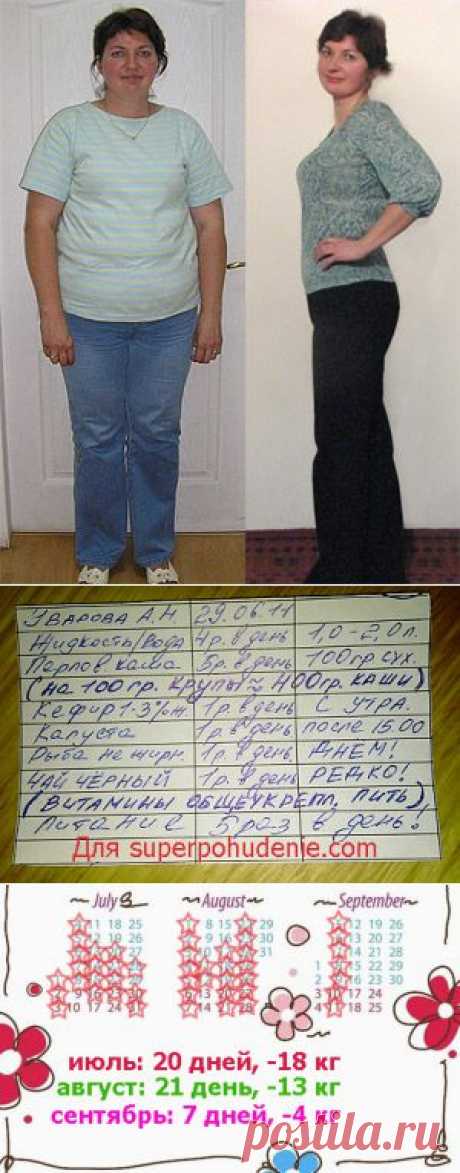 Уварова А.Н. 29.06.11
Жидкость/вода 4р. в день 1,0-2,0л.
Перлов каша 5р. в день 100гр сух.
(на 100гр. крупы ~ 400гр. каши)
Кефир 1-3%ж. 1р. в день с утра.
Капуста 1р. в день после 15.00
Рыба не жирн. 1р. в день Днем!
Чай чёрный 1р. в день Редко!
(Витамины общеукрепл. пить)
Питание 5 раз в день!
Для superpohudenie.com
~ July ~ ~August~ ~September~
11 18 25 1 8 15 29 12 19 26
12 19 26 30 13 20 27
27 31 14 21 28
1 8 15 22 29
2 9 16 23 30
9 16 3 10 17 24
10 17 24 4 18 25
июль: 20 дней, -18 кг
август: 21 день, -13 кг
сентябрь: 7 дней, -4 кг
postila.ru